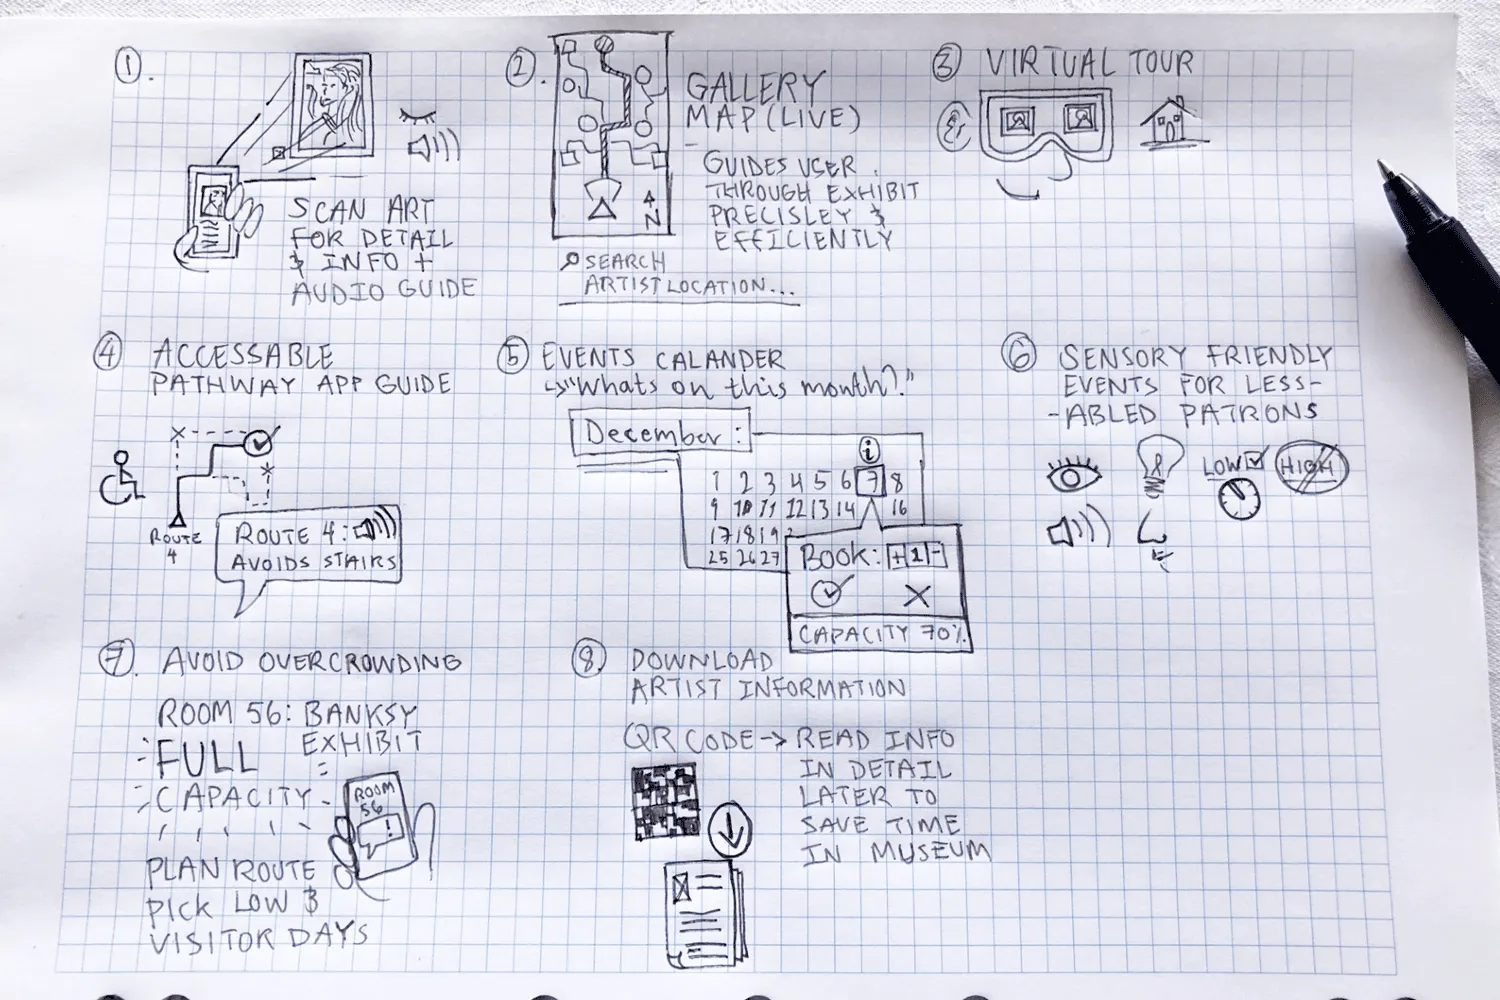 1.
SCAN ART
FOR DETAIL
& INFO +
AUDIO GUIDE
2.
GALLERY
MAP (LIVE)
-
GUIDES USER
THROUGH EXHIBIT
PRECISLEY &
EFFICIENTLY
N
SEARCH
ARTIST LOCATION...
3 VIRTUAL TOUR
4 ACCESSABLE
PATHWAY APP GUIDE
ROUTE
4
ROUTE 4:
AVOIDS STAIRS
5 EVENTS CALANDER
↳"Whats on this month?"
December:
i
1 2 3 4 5 6 7 8
9 10 11 12 13 14 16
17 18 19
25 26 27
BOOK: +1-
CAPACITY 70%
6 SENSORY FRIENDLY
EVENTS FOR LESS-
-ABLED PATRONS
LOW HIGH
7. AVOID OVERCROWDING
ROOM 56: BANKSY
EXHIBIT
FULL
CAPACITY
ROOM
56
!
PLAN ROUTE
PICK LOW &
VISITOR DAYS
8. DOWNLOAD
ARTIST INFORMATION
QR CODE → READ INFO
IN DETAIL
LATER TO
SAVE TIME
IN MUSEUM